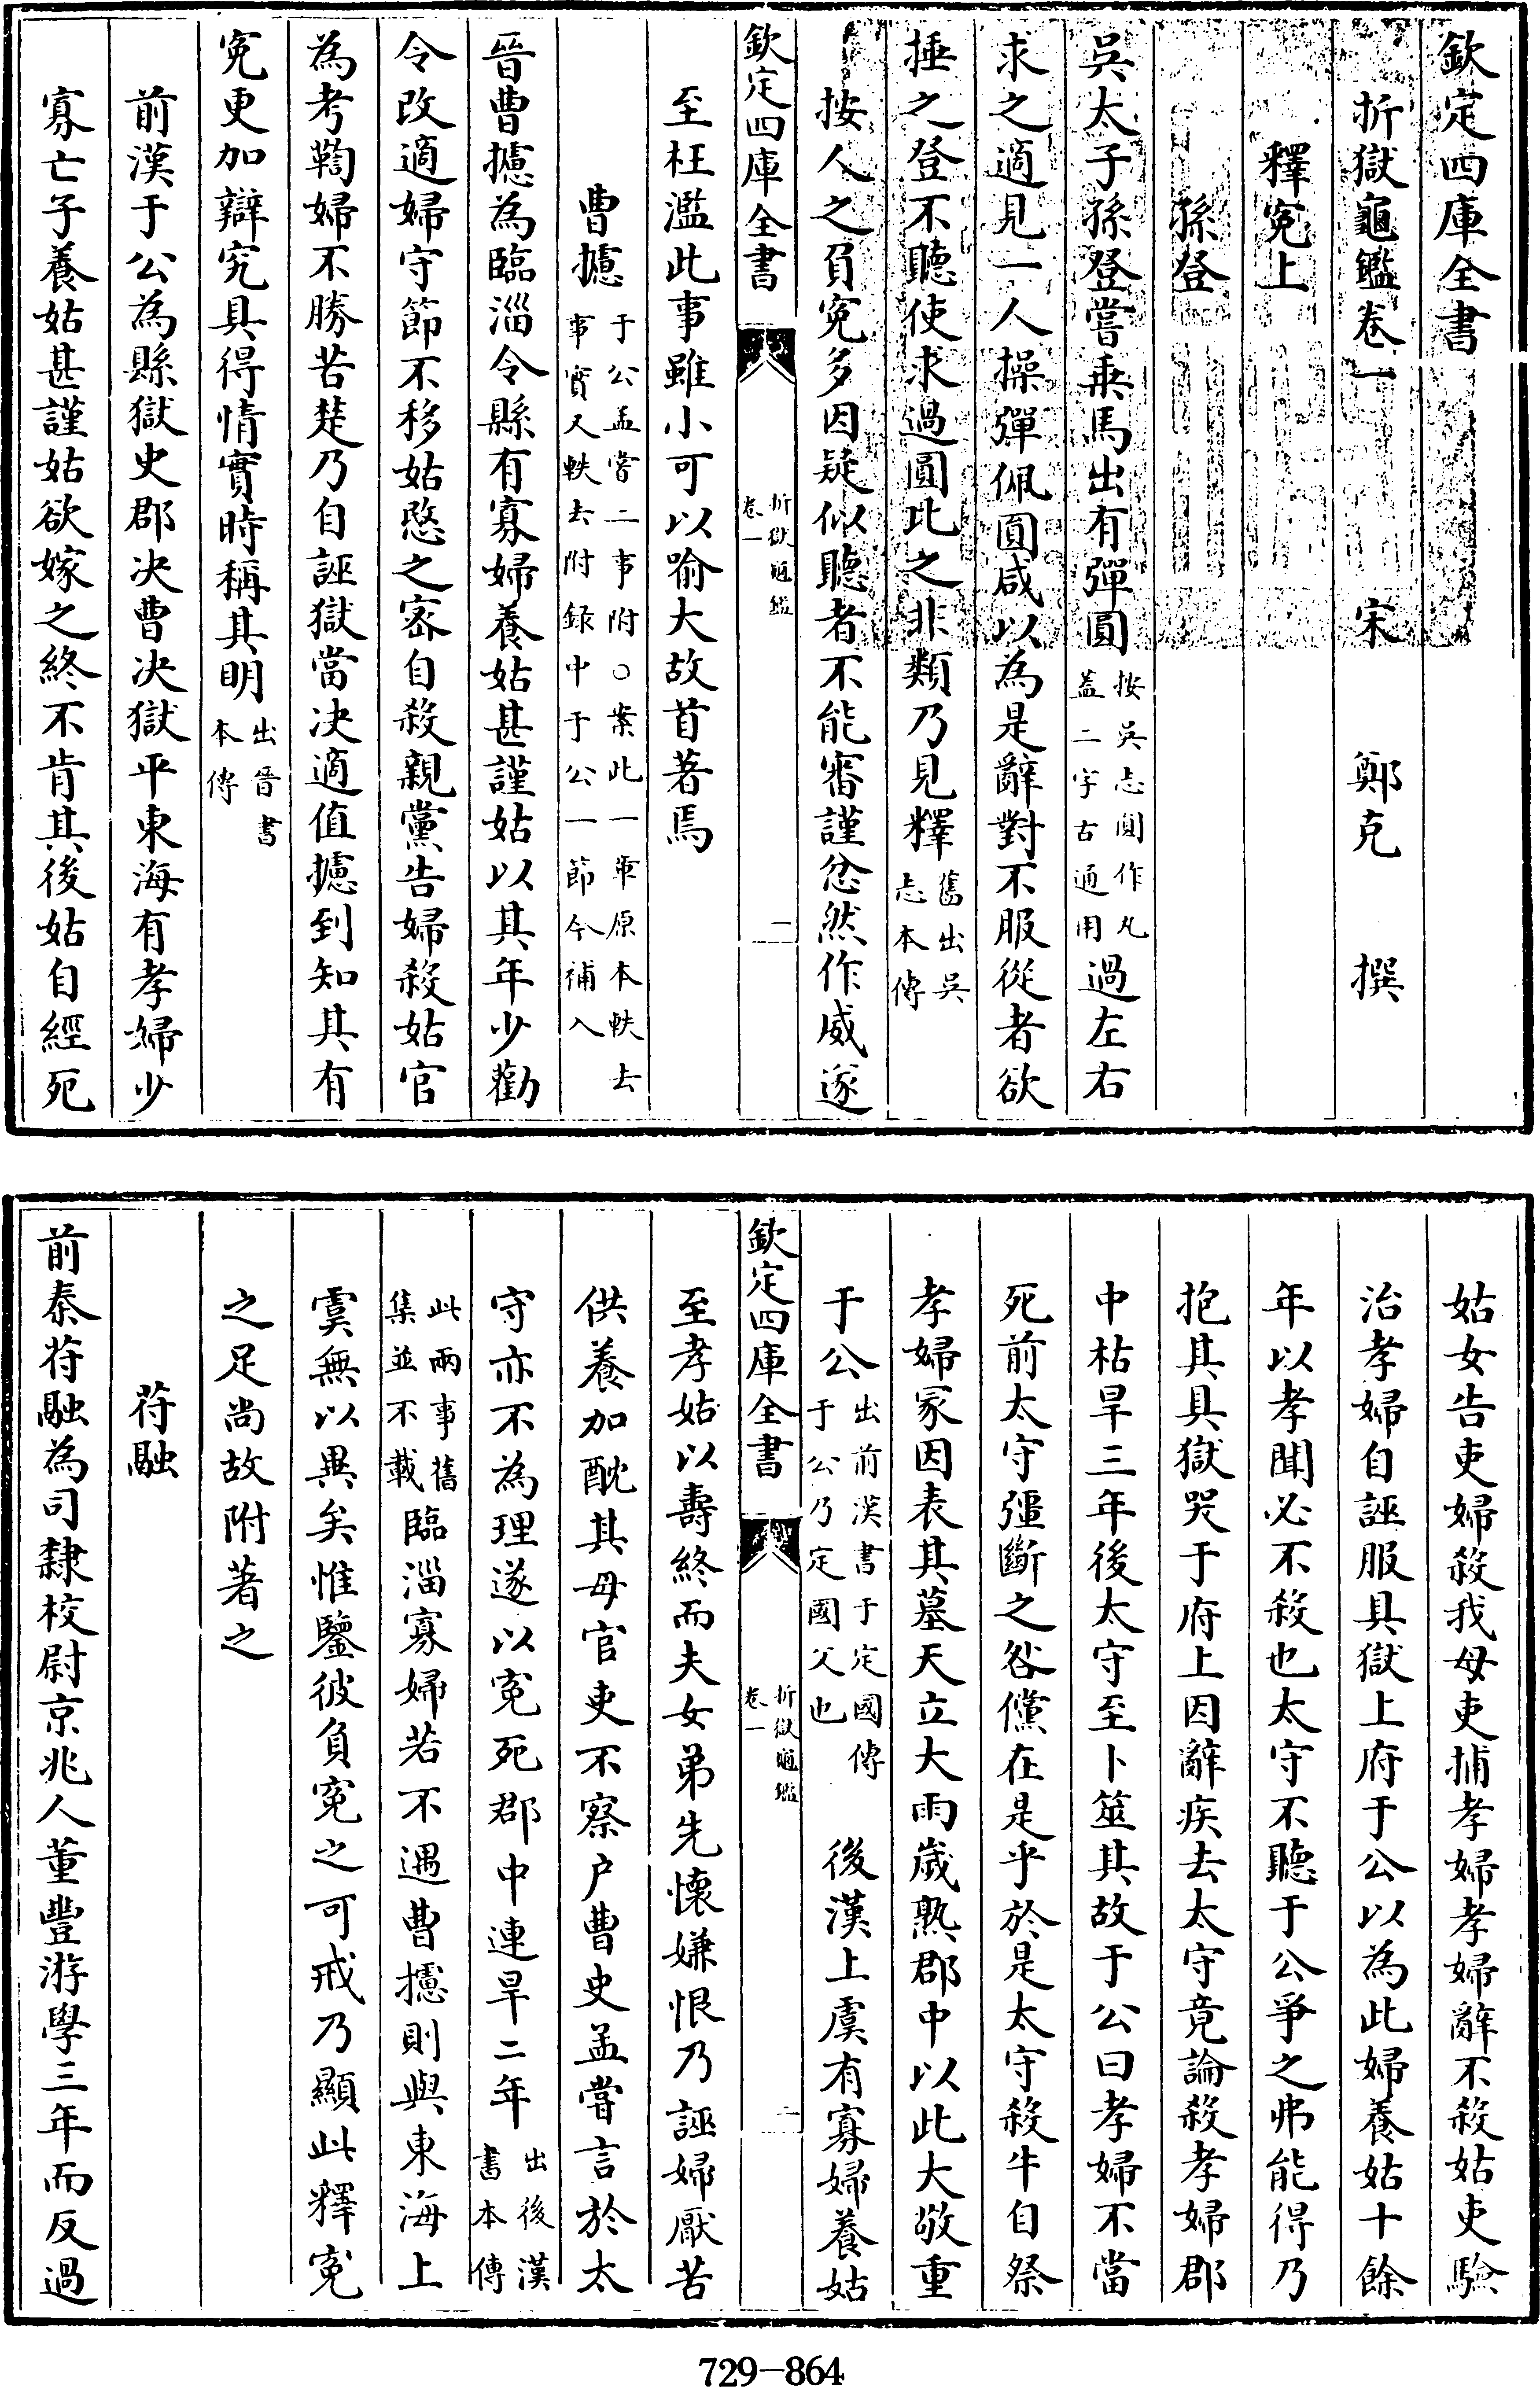 欽定四庫全書
折獄龜鑑卷一 宋 鄭克 撰
釋冤上
孫登
吳太子孫登嘗乘馬出有彈圓按吳志圓作丸蓋二字古通用過左右
求之適見一人操彈佩圓咸以為是辭對不服從者欲
捶之登不聽使求過圓比之非類乃見釋舊出吳志本傳
按人之負冤多因疑似聽者不能審謹忿然作威遂
欽定四庫全書 折獄龜鑑卷一 一
至枉濫此事雖小可以喻大故首著焉
曹攄于公孟嘗二事附○案此一事原本軼去事實又軼去附録中于公一節今補入
晉曹攄為臨淄令縣有寡婦養姑甚謹姑以其年少勸
令改適婦守節不移姑愍之密自殺親黨告婦殺姑官
為考鞫婦不勝苦楚乃自誣獄當决適值攄到知其有
冤更加辯究具得情實時稱其明出晉書本傳
前漢于公為縣獄史郡决曹决獄平東海有孝婦少
寡亡子養姑甚謹姑欲嫁之終不肯其後姑自經死
姑女告吏婦殺我母吏捕孝婦孝婦辭不殺姑吏驗
治孝婦自誣服具獄上府于公以為此婦養姑十餘
年以孝聞必不殺也太守不聽于公爭之弗能得乃
抱其具獄哭于府上因辭疾去太守竟論殺孝婦郡
中枯旱三年後太守至卜筮其故于公曰孝婦不當
死前太守彊斷之咎儻在是乎於是太守殺牛自祭
孝婦冢因表其墓天立大雨歲熟郡中以此大敬重
于公出前漢書于定國傳于公乃定國父也 後漢上虞有寡婦養姑
欽定四庫全書 折獄龜鑑卷一 二
至孝姑以壽終而夫女弟先懷嫌恨乃誣婦厭苦
供養加酖其母官吏不察户曹史孟嘗言於太
守亦不為理遂以冤死郡中連旱二年出後漢書本傳
此兩事舊集並不載臨淄寡婦若不遇曹攄則與東海上
虞無以異矣惟鑒彼負冤之可戒乃顯此釋冤
之足尚故附著之
苻融
前秦苻融為司隸校尉京兆人董豐游學三年而反過
729-864